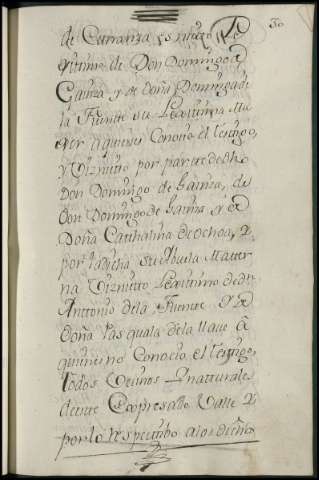 30
de Carranza es nieto Le
xitimo de Don Domingo de
Gainza y de Doña Dominga de
la Fuente su Lexitima Mu
ger a quienes Conocio el testigo,
y Viznieto por parte de dho
Don Domingo de Gainza, de
Don Domingo de Gainza y de
Doña Catthalina de Ochoa, y
por la dicha su Abuela Matter
na Viznietto Lexitimo de dn
Anttonio de la Fuente y de
Doña Pasquala de la Llave a
quienes no Conocio el testigo,
todos Vecinos y natturales
de este Expresado Valle y
por lo respectibo a los dichos